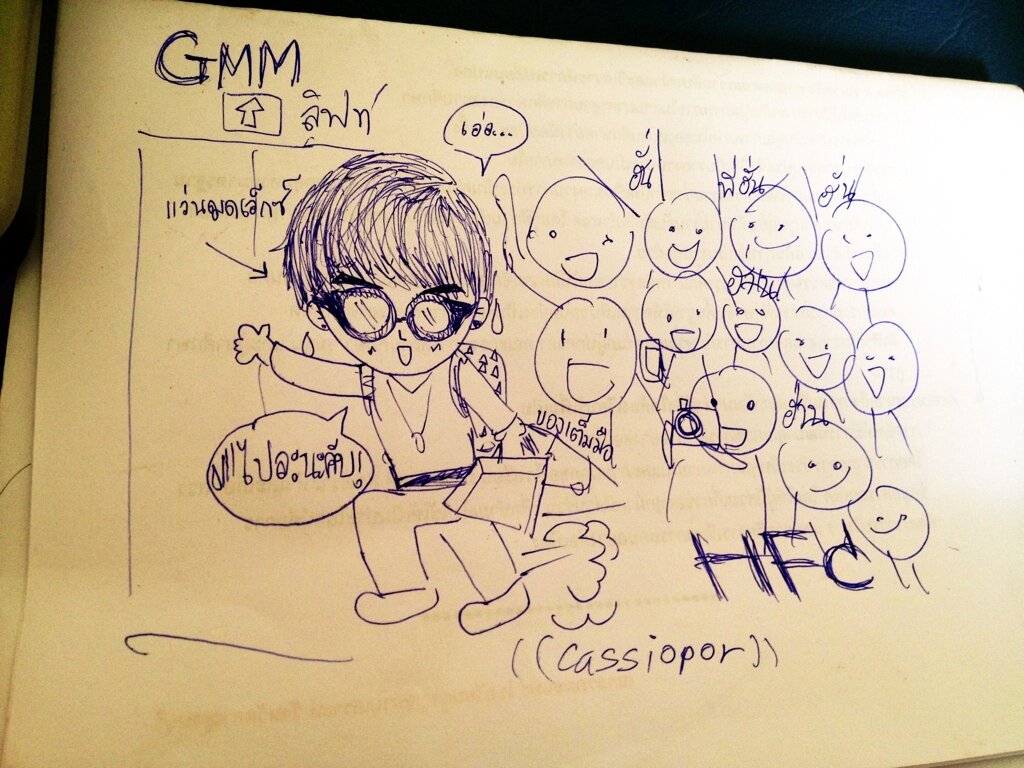 GMM
ลิฟท์
เอ่อ...
แว่นมดเอ็กซ์
ฮั่น
พี่ฮั่น
ฮั่น
ของเต็มมือ
ฮ่าน
ไปละนะคับ!
HFC
((Cassiopor))